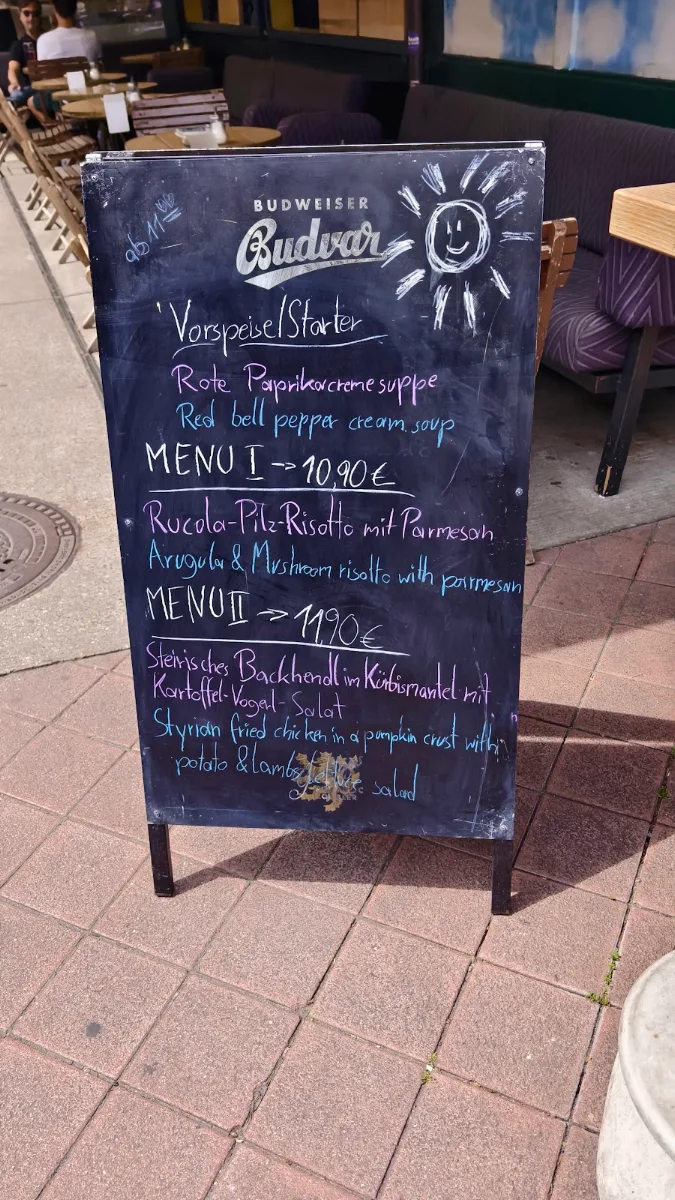 ab 11
BUDWEISER
Budvar
Vorspeise/Starter
Rote Paprikacremesuppe
Red bell pepper cream soup
MENU I -> 10,90€
Rucola-Pilz-Risotto mit Parmesan
Arugula & Mushroom risotto with parmesan
MENU II -> 11,90€
Steirisches Backhendl im Kürbismantel mit
Kartoffel-Vogerl-Salat
Styrian fried chicken in a pumpkin crust with
potato & lambs lettuce salad